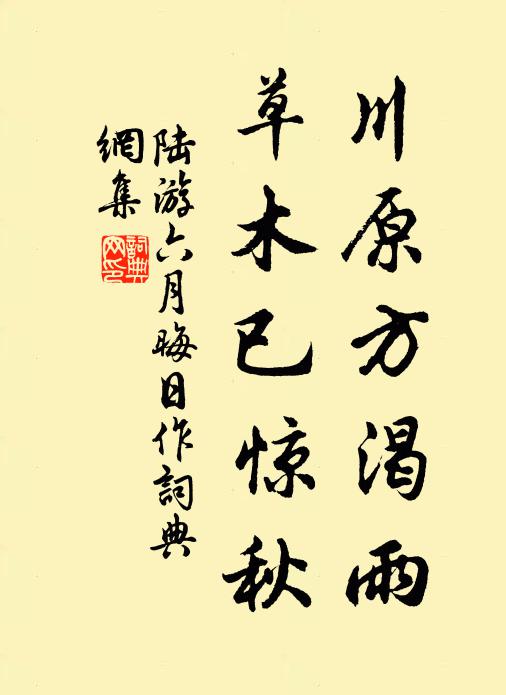 川原方渴雨
草木已惊秋
陆游六月晦日作詞典
網集
詞典网印